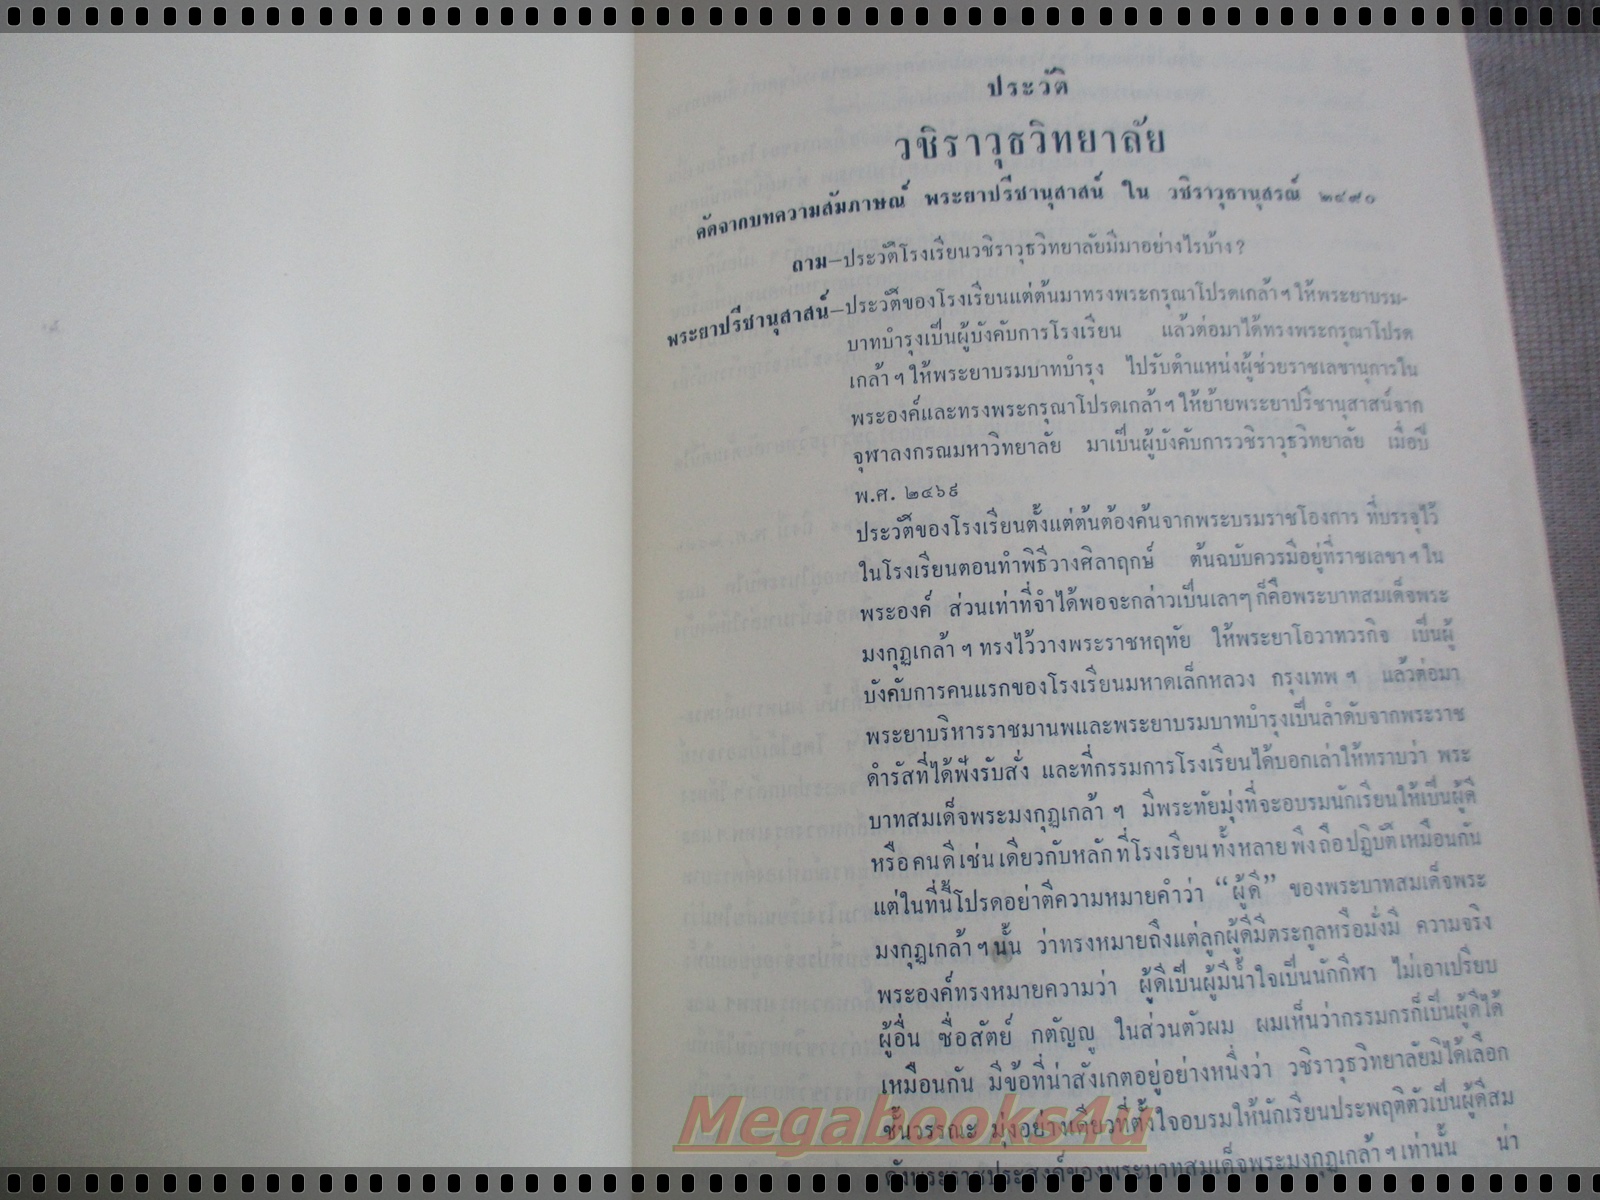 ประวัติ
วชิราวุธวิทยาลัย
คัดจากบทความสัมภาษณ์ พระยาปรีชานุสาสน์ ใน วชิราวุธานุสรณ์ ๒๔๙๐
ถาม—ประวัติโรงเรียนวชิราวุธวิทยาลัยมีมาอย่างไรบ้าง?
พระยาปรีชานุสาสน์—ประวัติของโรงเรียนแต่ต้นมาทรงพระกรุณาโปรดเกล้า ฯ ให้พระยาบรม-
บาทบำรุงเป็นผู้บังคับการโรงเรียน แล้วต่อมาได้ทรงพระกรุณาโปรด
เกล้า ฯ ให้พระยาบรมบาทบำรุง ไปรับตำแหน่งผู้ช่วยราชเลขานุการใน
พระองค์และทรงพระกรุณาโปรดเกล้า ฯ ให้ย้ายพระยาปรีชานุสาสน์จาก
จุฬาลงกรณมหาวิทยาลัย มาเป็นผู้บังคับการวชิราวุธวิทยาลัย เมื่อปี
พ.ศ. ๒๔๖๙
ประวัติของโรงเรียนตั้งแต่ต้นต้องค้นจากพระบรมราชโองการ ที่บรรจุไว้
ในโรงเรียนตอนทำพิธีวางศิลาฤกษ์ ต้นฉบับควรมีอยู่ที่ราชเลขา ฯ ใน
พระองค์ ส่วนเท่าที่จำได้พอจะกล่าวเป็นเลาๆ ก็คือพระบาทสมเด็จพระ
มงกุฏเกล้า ฯ ทรงไว้วางพระราชหฤทัย ให้พระยาโอวาทวรกิจ เป็นผู้
บังคับการคนแรกของโรงเรียนมหาดเล็กหลวง กรุงเทพ ฯ แล้วต่อมา
พระยาบริหารราชมานพและพระยาบรมบาทบำรุงเป็นลำดับจากพระราช
ดำรัสที่ได้ฟังรับสั่ง และที่กรรมการโรงเรียนได้บอกเล่าให้ทราบว่า พระ
บาทสมเด็จพระมงกุฏเกล้า ฯ มีพระทัยมุ่งที่จะอบรมนักเรียนให้เป็นผู้ดี
หรือคนดีเช่นเดียวกับหลักที่โรงเรียนทั้งหลายพึงถือปฏิบัติเหมือนกัน
แต่ในที่นี้โปรดอย่าตีความหมายคำว่า “ผู้ดี” ของพระบาทสมเด็จพระ
มงกุฏเกล้า ฯ นั้น ว่าทรงหมายถึงแต่ลูกผู้ดีมีตระกูลหรือมั่งมี ความจริง
พระองค์ทรงหมายความว่า ผู้ดีเป็นผู้มีน้ำใจเป็นนักกีฬา ไม่เอาเปรียบ
ผู้อื่น ซื่อสัตย์ กตัญญู ในส่วนตัวผม ผมเห็นว่ากรรมกรก็เป็นผู้ดีได้
เหมือนกัน มีข้อที่น่าสังเกตอยู่อย่างหนึ่งว่า วชิราวุธวิทยาลัยมิได้เลือก
ชั้นวรรณะ มุ่งอย่างเดียวที่ตั้งใจอบรมให้นักเรียนประพฤติตัวเป็นผู้ดีสม
ดังพระราชประสงค์ของพระบาทสมเด็จพระมงกุฏเกล้า ฯ เท่านั้น น่า
Megabooks4u